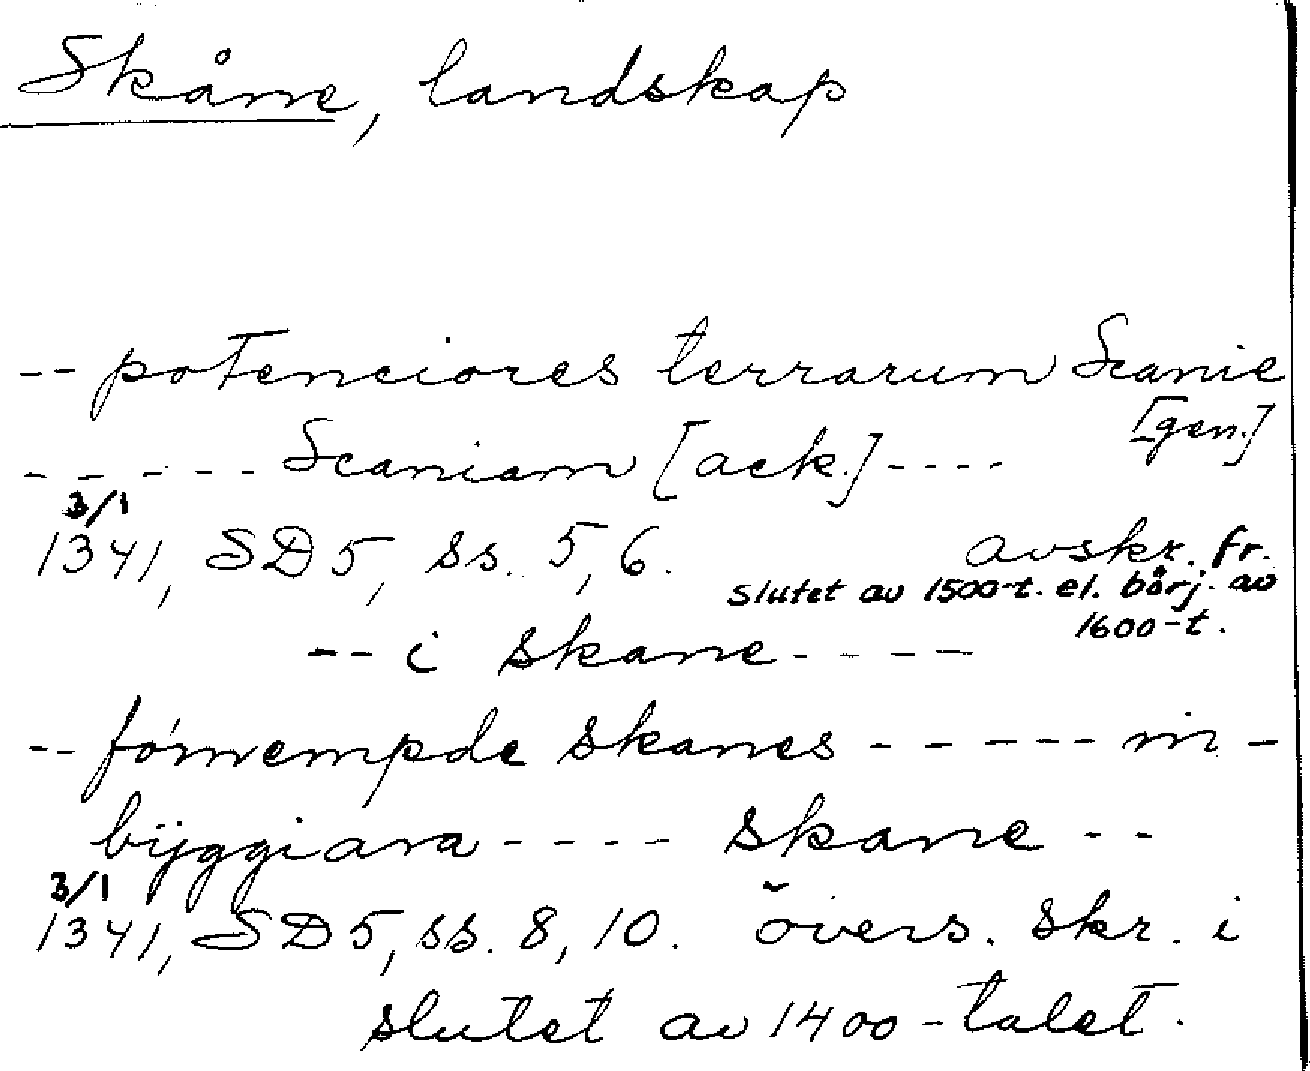 Skåne, landskap
-- potenciores terrarum Scanie
[gen.]
- - - - - - Scaniam [ack.] - - - -
3/1
1341, SD 5, ss. 5, 6. avskr. fr.
slutet av 1500-t. el. börj. av
1600-t.
-- i skane - - - - -
-- förnempde skanes - - - - - - in -
byggiara - - - - skane - -
3/1
1341, SD 5, ss. 8, 10. övers. skr. i
slutet av 1400-talet.